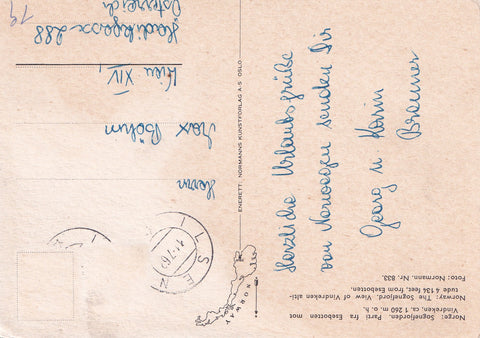 Norge: Sognefjorden. Parti fra Esebotten mot
Vindreken, ca. 1 260 m. o. h.
Norway: The Sognefjord. View of Vindreken alti-
tude 4 134 feet, from Esebotten.
Foto: Normann. Nr. 833.
Herzliche Urlaubsgrüße
von Norwegen senden Dir
Georg u Karin
Brauner
ENERETT: NORMANNS KUNSTFORLAG A·S OSLO
NORWAY
Herrn
Max Böhm
Wien XIV,
Hadikgasse 288
Österreich
19